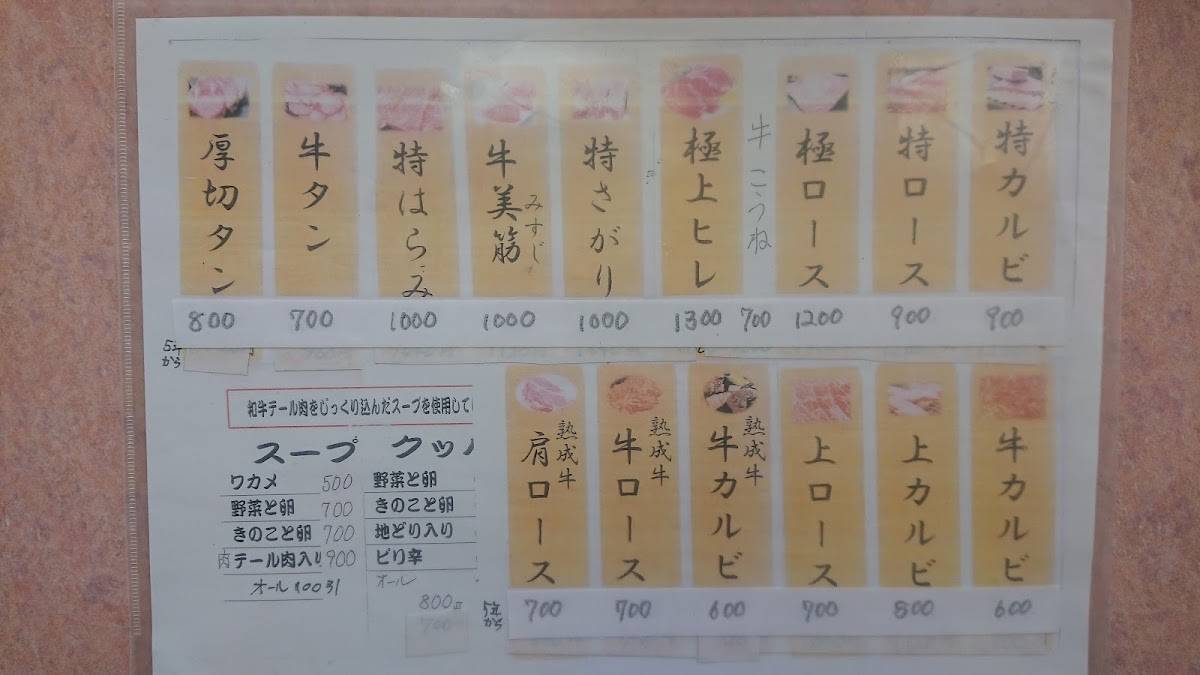 特カルビ
特ロース
極ロース
牛こうね
極上ヒレ
特さがり
牛美筋
みすじ
特はらみ
牛タン
厚切タン
800 700 1000 1000 1000 1300 700 1200 900 900
から
牛カルビ
上カルビ
上ロース
熟成牛
牛カルビ
熟成牛
牛ロース
熟成牛
肩ロース
から 700 700 600 700 800 600
和牛テール肉をじっくり込んだスープを使用してい
スープ
ワカメ 500
野菜と卵 700
きのこと卵 700
肉テール肉入り 900
オール
クッパ
野菜と卵
きのこと卵
地どり入り
ピリ辛
オール
800
700